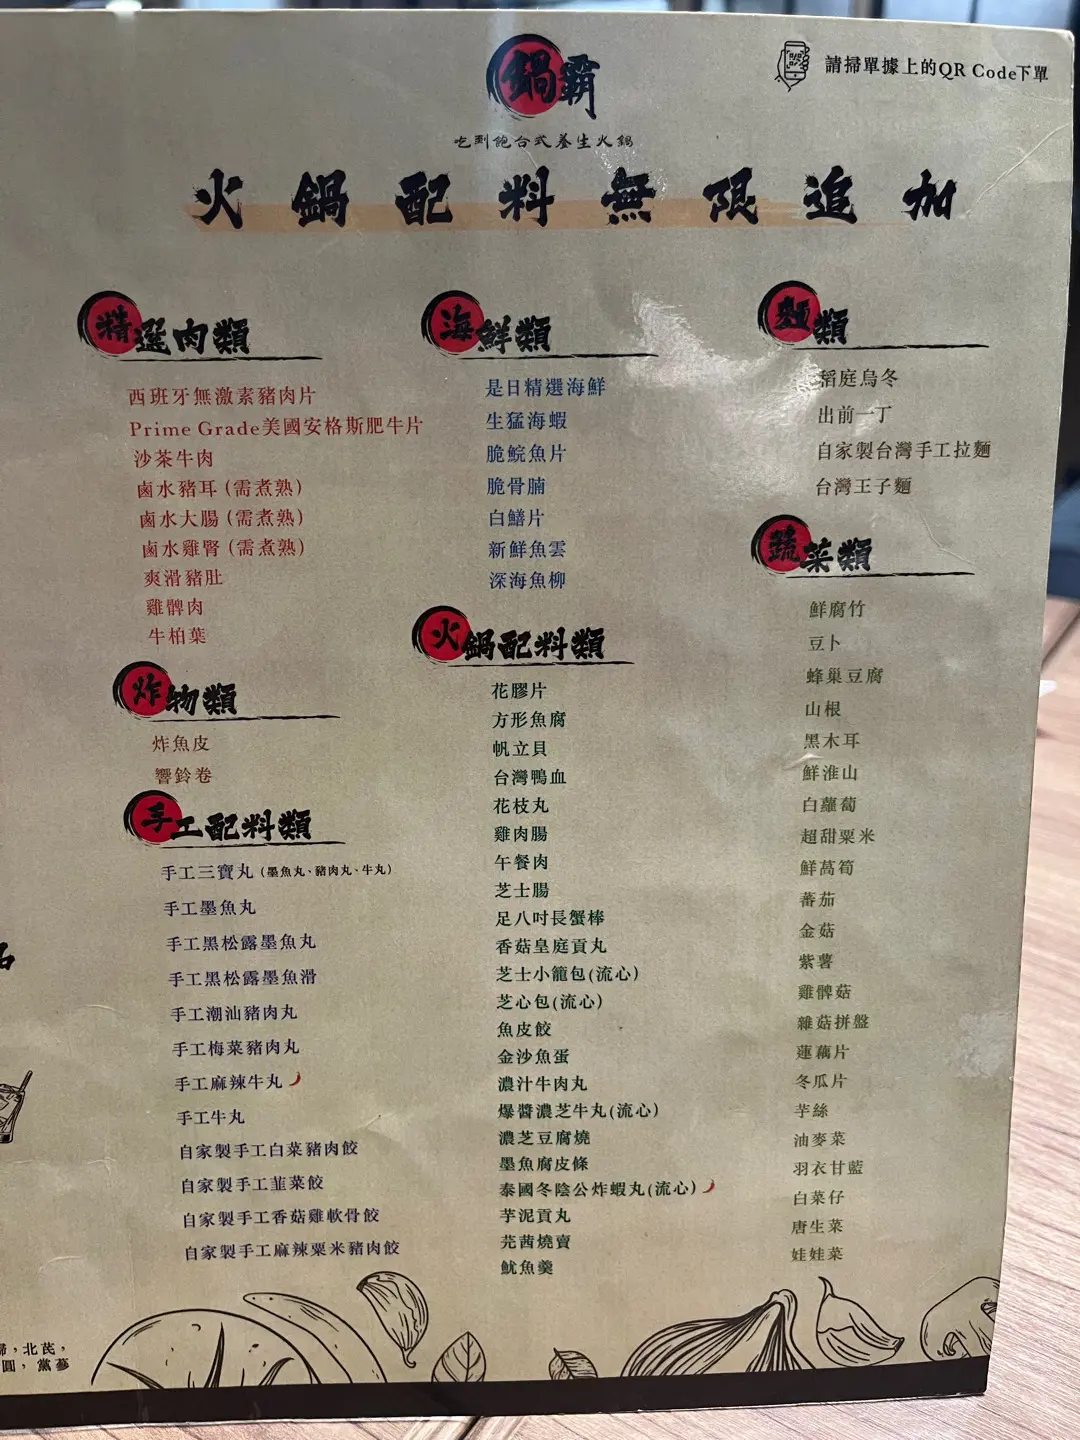 鍋霸
吃到飽台式養生火鍋
請掃單據上的QR Code下單
火鍋配料無限追加
精選肉類
西班牙無激素豬肉片
Prime Grade美國安格斯肥牛片
沙茶牛肉
鹵水豬耳(需煮熟)
鹵水大腸(需煮熟)
鹵水雞腎(需煮熟)
爽滑豬肚
雞髀肉
牛柏葉
炸物類
炸魚皮
響鈴卷
手工配料類
手工三寶丸(墨魚丸、豬肉丸、牛丸)
手工墨魚丸
手工黑松露墨魚丸
手工黑松露墨魚滑
手工潮汕豬肉丸
手工梅菜豬肉丸
手工麻辣牛丸
手工牛丸
自家製手工白菜豬肉餃
自家製手工韮菜餃
自家製手工香菇雞軟骨餃
自家製手工麻辣粟米豬肉餃
海鮮類
是日精選海鮮
生猛海蝦
脆鯇魚片
脆骨腩
白鱔片
新鮮魚雲
深海魚柳
火鍋配料類
花膠片
方形魚腐
帆立貝
台灣鴨血
花枝丸
雞肉腸
午餐肉
芝士腸
足八吋長蟹棒
香菇皇庭貢丸
芝士小籠包(流心)
芝心包(流心)
魚皮餃
金沙魚蛋
濃汁牛肉丸
爆醬濃芝牛丸(流心)
濃芝豆腐燒
墨魚腐皮條
泰國冬陰公炸蝦丸(流心)
芋泥貢丸
芫茜燒賣
魷魚羹
麵類
稻庭烏冬
出前一丁
自家製台灣手工拉麵
台灣王子麵
蔬菜類
鮮腐竹
豆卜
蜂巢豆腐
山根
黑木耳
鮮淮山
白蘿蔔
超甜粟米
鮮萵筍
蕃茄
金菇
紫薯
雞髀菇
雜菇拼盤
蓮藕片
冬瓜片
芋絲
油麥菜
羽衣甘藍
白菜仔
唐生菜
娃娃菜
歸，北芪，
圓，黨蔘